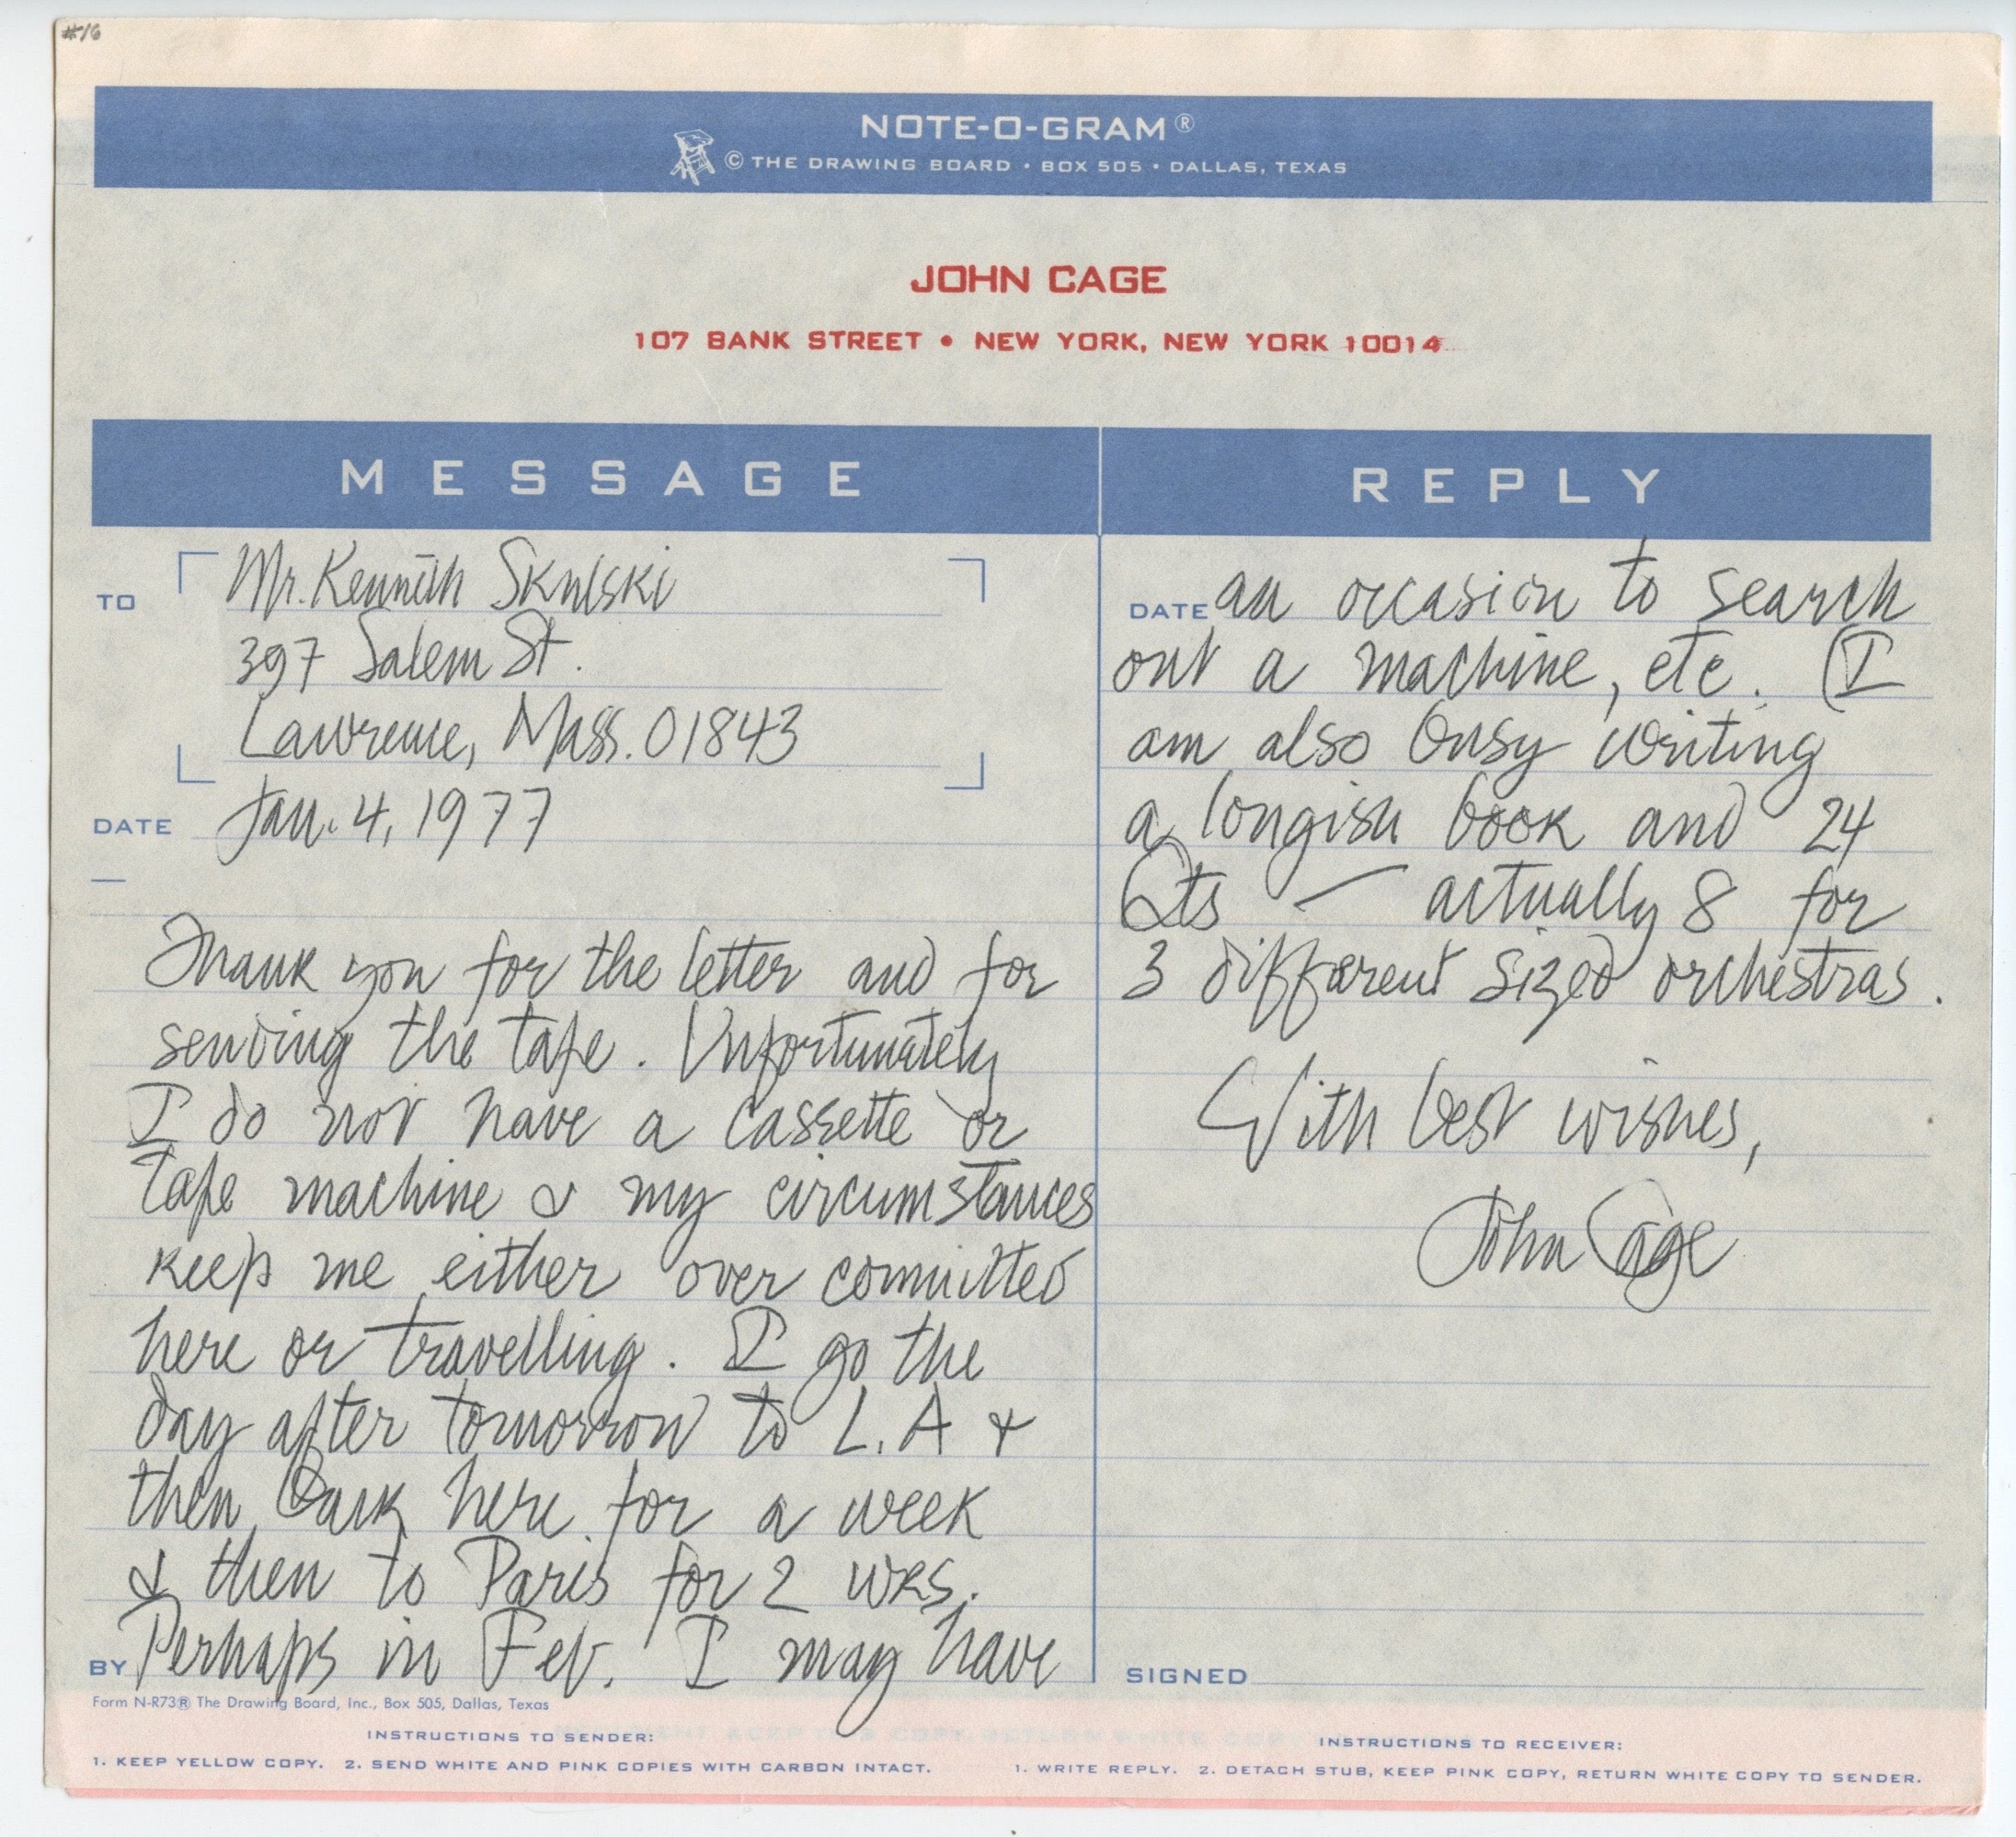 #16
NOTE-O-GRAM®
© THE DRAWING BOARD • BOX 505 • DALLAS, TEXAS
JOHN CAGE
107 BANK STREET • NEW YORK, NEW YORK 10014
MESSAGE
TO Mr. Kenneth Skulski
397 Salem St.
Lawrence, Mass. 01843
DATE Jan. 4, 1977
Thank you for the letter and for
sending the tape. Unfortunately
I do not have a cassette or
tape machine & my circumstances
keep me either over committed
here or travelling. I go the
day after tomorrow to L.A &
then back here for a week
& then to Paris for 2 wks.
BY Perhaps in Feb. I may have
REPLY
DATE an occasion to search
out a machine, etc. (I
am also busy writing
a longish book and 24
Qts — actually 8 for
3 different sized orchestras.
With best wishes,
John Cage
SIGNED
Form N-R73® The Drawing Board, Inc., Box 505, Dallas, Texas
INSTRUCTIONS TO SENDER:
1. KEEP YELLOW COPY. 2. SEND WHITE AND PINK COPIES WITH CARBON INTACT.
INSTRUCTIONS TO RECEIVER:
1. WRITE REPLY. 2. DETACH STUB, KEEP PINK COPY, RETURN WHITE COPY TO SENDER.